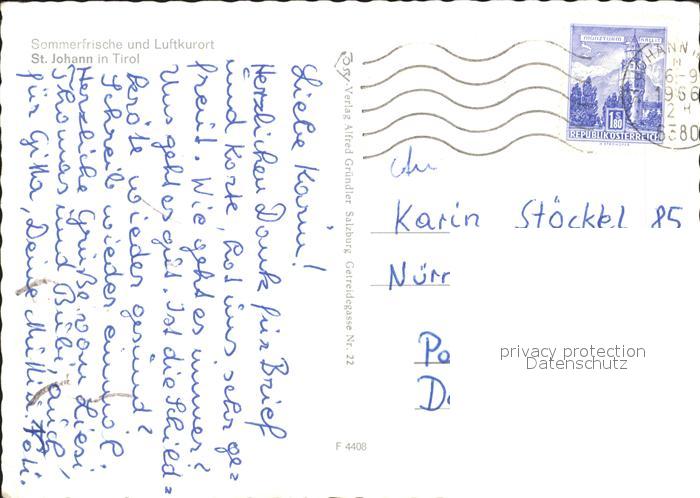 Sommerfrische und Luftkurort
St. Johann in Tirol
Liebe Karin!
Herzlichen Dank für Brief
und Karte, hat uns sehr ge=
freut. Wie geht es immer?
Uns geht es gut. Ist die Schild=
kröte wieder gesund?
Schreib wieder einmal!
Herzliche Grüße von Liesi
Thomas und Bubi, auch
für Gitta, Deine
Verlag Alfred Gründler Salzburg Getreidegasse Nr. 22
F 4408
MÜNZTURM HALL
S 1.80
REPUBLIK ÖSTERREICH
JOHANN
6-9
1966
6380
An
Karin Stöckel 85
Nürn
Po
D
privacy protection
Datenschutz